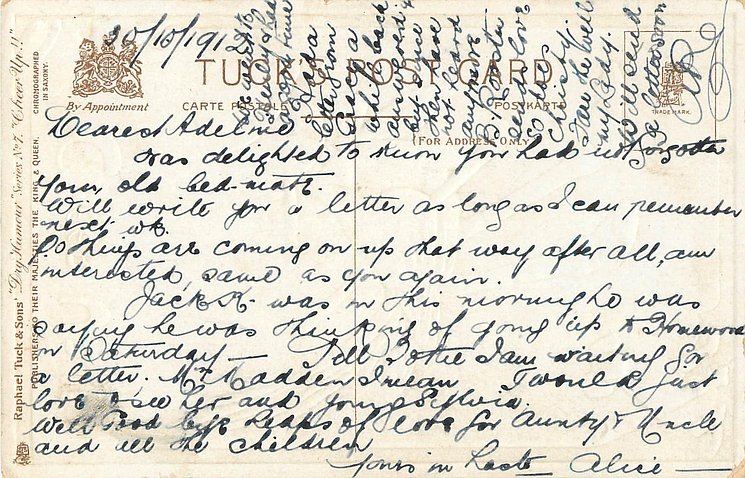 30/10/1912
TUCK'S POST CARD
By Appointment
CARTE POSTALE
POSTKARTE
(FOR ADDRESS ONLY)
TRADE MARK.
Raphael Tuck & Sons' "Dry Humour" Series No 7. "Cheer Up!!"
PUBLISHERS TO THEIR MAJESTIES THE KING & QUEEN.
CHROMOGRAPHED IN SAXONY.
Dearest Adeline
was delighted to know you had not forgotten
your old bed-mate.
Will write you a letter as long as I can remember
next wk.
So things are coming on up that way after all, am
interested, same as you again.
Jack K. was in this morning he was
saying he was thinking of going up to Homewood
on Saturday — Tell I am waiting for
a letter. Mrs Madden I mean I would just
love to see her and young Sylvia.
Well Good bye heaps of love for Aunty & Uncle
and all the children
Yours in haste Alice —
a good time
I had a
letter from
a
while back
answered it
but since
then have
not heard
any more
sends love
so does
Fare the well
my Lady.
Will send
a letter soon